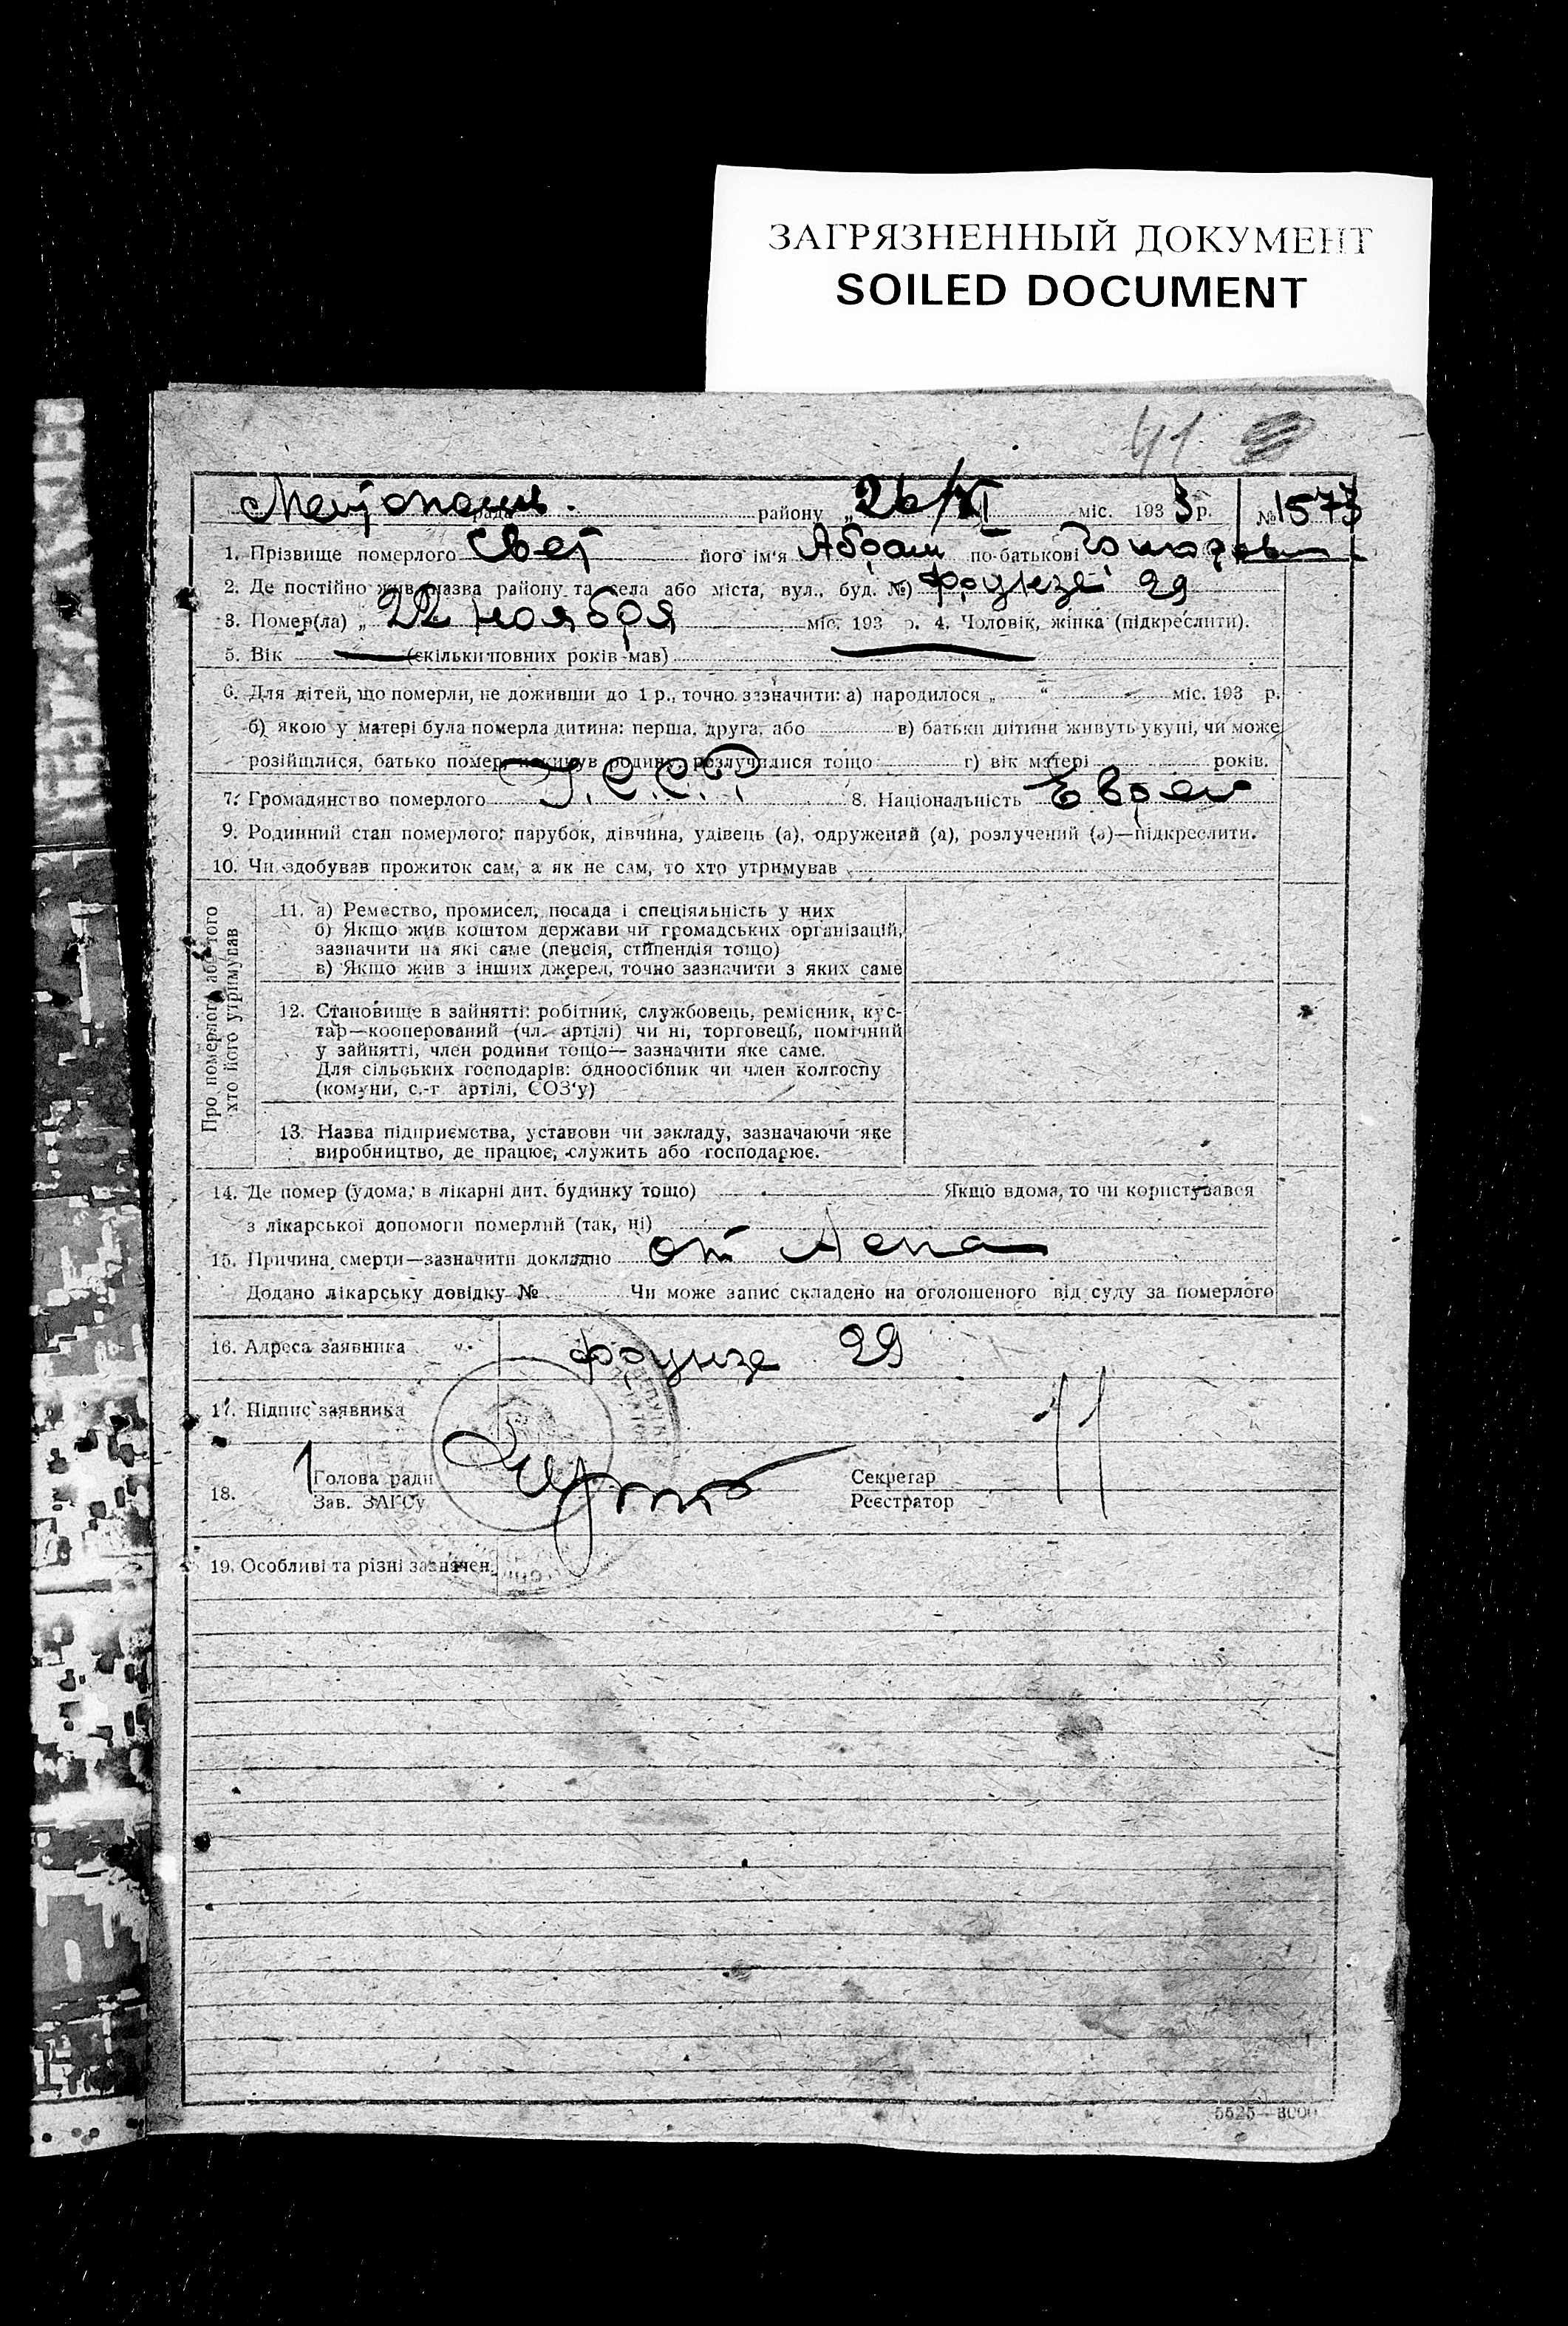 ЗАГРЯЗНЕННЫЙ ДОКУМЕНТ
SOILED DOCUMENT
41
району „ 26/XI міс. 1933 р. № 1573
1. Прізвище померлого його ім'я Абрам по-батькові
2. Де постійно жив (назва району та села або міста, вул., буд. №) Фрунзе 29
3. Помер(ла) „ 22 ноября міс. 193 р. 4. Чоловік, жінка (підкреслити).
5. Вік (скільки повних років мав)
6. Для дітей, що померли, не доживши до 1 р., точно зазначити: а) народилося „ “ міс. 193 р.
б) якою у матері була померла дитина: перша, друга, або в) батьки дитини живуть укупі, чи може
розійшлися, батько помер, покинув родину, розлучилися тощо г) вік матері років.
7. Громадянство померлого У.С.С.Р. 8. Національність Еврей
9. Родинний стан померлого: парубок, дівчина, удівець (а), одружений (а), розлучений (а)—підкреслити.
10. Чи здобував прожиток сам, а як не сам, то хто утримував
Про померлого або того
хто його утримував
11. а) Ремество, промисел, посада і спеціяльність у них
б) Якщо жив коштом держави чи громадських організацій,
зазначити на які саме (пенсія, стипендія тощо)
в) Якщо жив з інших джерел, точно зазначити з яких саме
12. Становище в зайнятті: робітник, службовець, ремісник, кус-
тар—кооперований (чл. артілі) чи ні, торговець, помічний
у зайнятті, член родини тощо—зазначити яке саме.
Для сільських господарів: одноосібник чи член колгоспу
(комуни, с.-г артілі, СОЗ'у)
13. Назва підприємства, установи чи закладу, зазначаючи яке
виробництво, де працює, служить або господарює.
14. Де помер (удома, в лікарні дит. будинку тощо) Якщо вдома, то чи користувався
з лікарської допомоги померлий (так, ні)
15. Причина смерти—зазначити докладно от
Додано лікарську довідку № Чи може запис складено на оголошеного від суду за померлого
16. Адреса заявника Фрунзе 29
17. Підпис заявника
18. Голова ради Секретар
Зав. ЗАГСу Реєстратор
19. Особливі та різні зазначен.
5525—3000